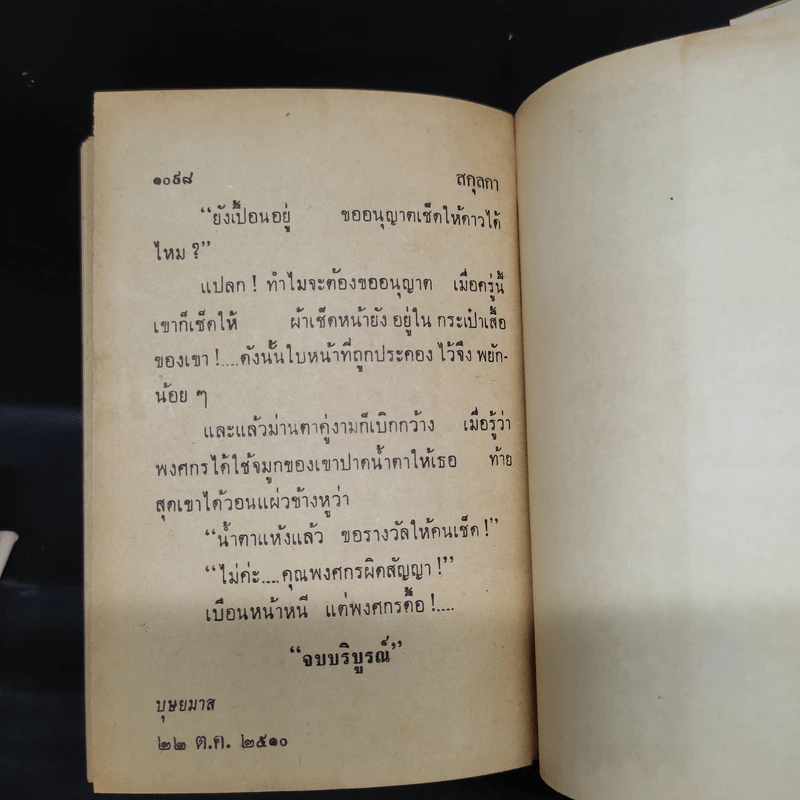 ๑๐๙๘ สกุลกา
“ยังเปื้อนอยู่ ขออนุญาตเช็ดให้ดาวได้
ไหม ?”
แปลก ! ทำไมจะต้องขออนุญาต เมื่อครู่นี้
เขาก็เช็ดให้ ผ้าเช็ดหน้ายัง อยู่ใน กระเป๋าเสื้อ
ของเขา !....ดังนั้นใบหน้าที่ถูกประคอง ไว้จึง พยัก-
น้อย ๆ
และแล้วม่านตาคู่งามก็เบิกกว้าง เมื่อรู้ว่า
พงศกรได้ใช้จมูกของเขาปาดน้ำตาให้เธอ ท้าย
สุดเขาได้วอนแผ่วข้างหูว่า
“น้ำตาแห้งแล้ว ขอรางวัลให้คนเช็ด !”
“ไม่ค่ะ....คุณพงศกรผิดสัญญา !”
เบือนหน้าหนี แต่พงศกรดื้อ !....
“จบบริบูรณ์”
บุษยมาส
๒๒ ต.ค. ๒๕๑๐